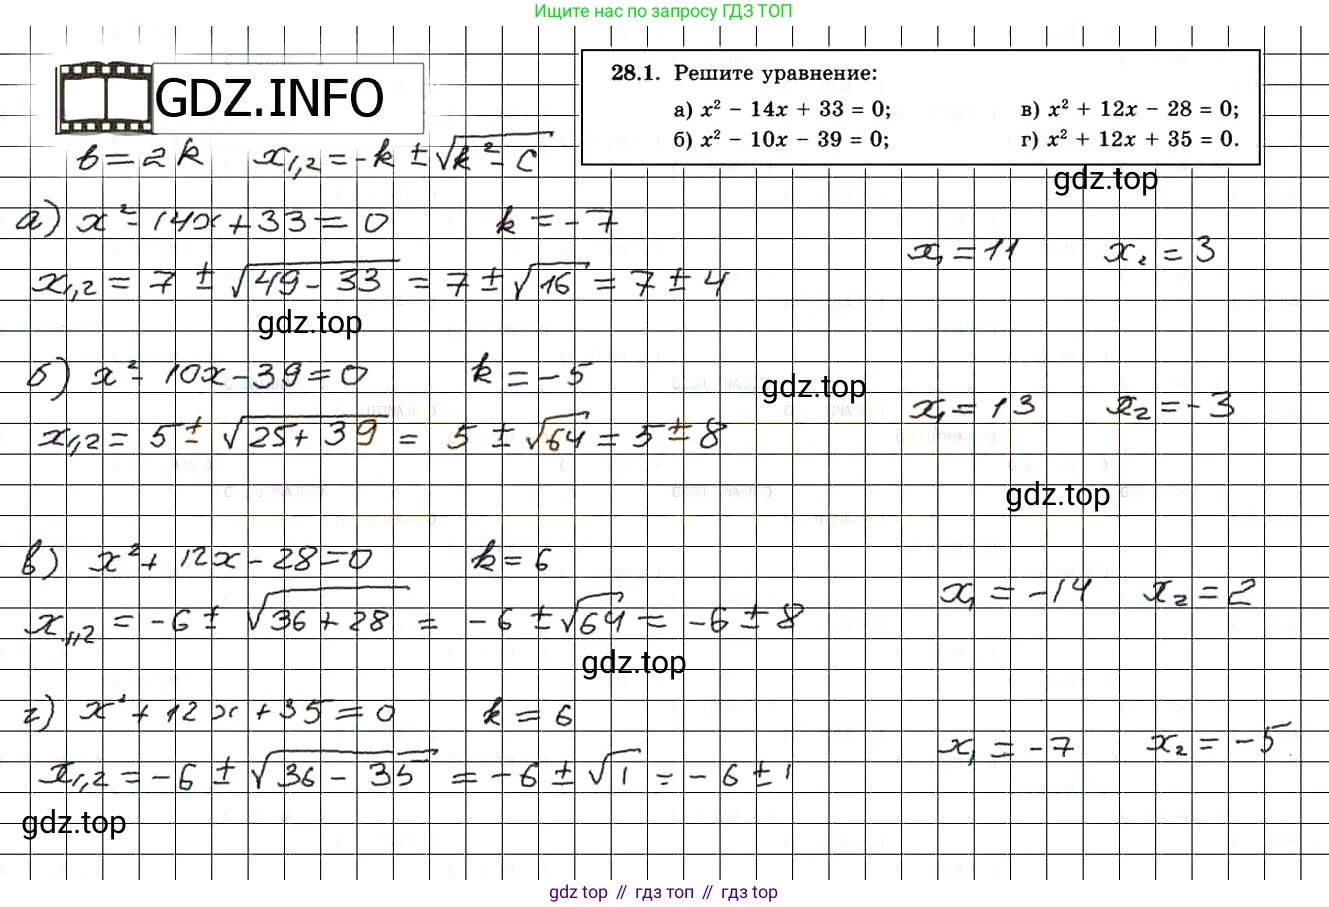 Ищите нас по запросу ГДЗ ТОП
GDZ.INFO
28.1. Решите уравнение:
а) x² − 14x + 33 = 0;
в) x² + 12x − 28 = 0;
б) x² − 10x − 39 = 0;
г) x² + 12x + 35 = 0.
gdz.top
b = 2k x₁,₂ = -k ± √(k² - c)
а) x² - 14x + 33 = 0 k = -7
x₁,₂ = 7 ± √(49 - 33) = 7 ± √16 = 7 ± 4
x₁ = 11 x₂ = 3
gdz.top
б) x² - 10x - 39 = 0 k = -5
gdz.top
x₁,₂ = 5 ± √(25 + 39) = 5 ± √64 = 5 ± 8
x₁ = 13 x₂ = -3
gdz.top
в) x² + 12x - 28 = 0 k = 6
x₁,₂ = -6 ± √(36 + 28) = -6 ± √64 = -6 ± 8
x₁ = -14 x₂ = 2
gdz.top
г) x² + 12x + 35 = 0 k = 6
x₁,₂ = -6 ± √(36 - 35) = -6 ± √1 = -6 ± 1
x₁ = -7 x₂ = -5
gdz.top
gdz top // гдз топ // гдз top